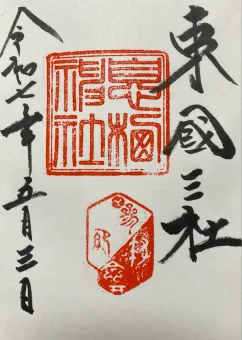 東國三社
息栖神社
令和七年五月三日